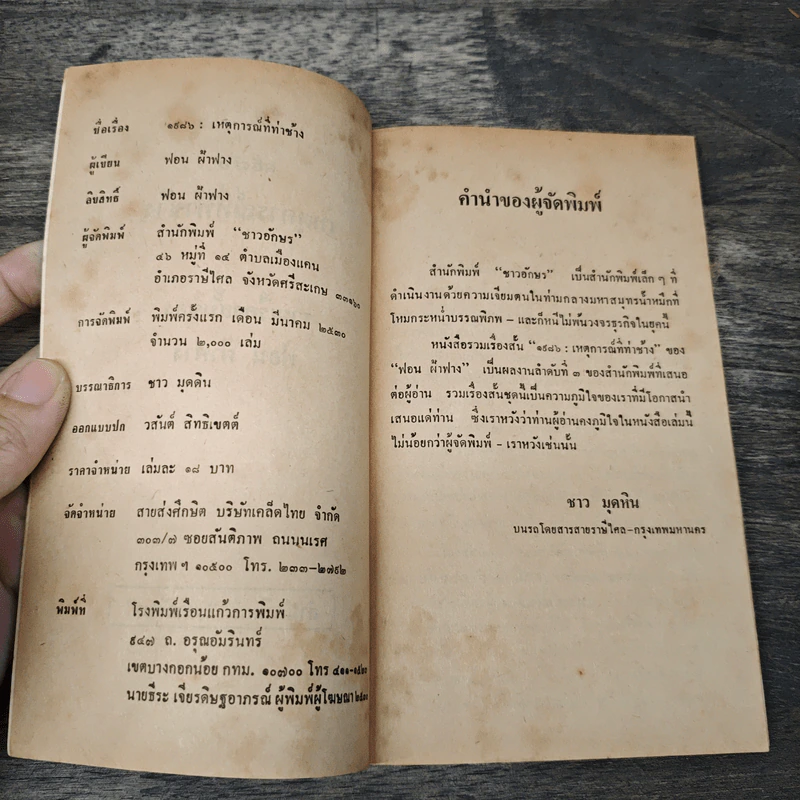 ชื่อเรื่อง ๑๙๘๖ : เหตุการณ์ที่ท่าช้าง
ผู้เขียน ฟอน ฝ้าฟาง
ลิขสิทธิ์ ฟอน ฝ้าฟาง
ผู้จัดพิมพ์ สำนักพิมพ์ “ชาวอักษร”
๔๖ หมู่ที่ ๑๔ ตำบลเมืองแคน
อำเภอราษีไศล จังหวัดศรีสะเกษ ๓๓๑๖๐
การจัดพิมพ์ พิมพ์ครั้งแรก เดือน มีนาคม ๒๕๓๐
จำนวน ๒,๐๐๐ เล่ม
บรรณาธิการ ชาว มุดดิน
ออกแบบปก วสันต์ สิทธิเขตต์
ราคาจำหน่าย เล่มละ ๑๘ บาท
จัดจำหน่าย สายส่งศึกษิต บริษัทเคล็ดไทย จำกัด
๓๐๓/๗ ซอยสันติภาพ ถนนนเรศ
กรุงเทพ ฯ ๑๐๕๐๐ โทร. ๒๓๓-๒๗๙๒
พิมพ์ที่ โรงพิมพ์เรือนแก้วการพิมพ์
๙๔๗ ถ. อรุณอัมรินทร์
เขตบางกอกน้อย กทม. ๑๐๗๐๐ โทร
นายธีระ เจียรดิษฐอาภรณ์ ผู้พิมพ์ผู้โฆษณา
คำนำของผู้จัดพิมพ์
สำนักพิมพ์ “ชาวอักษร” เป็นสำนักพิมพ์เล็ก ๆ ที่
ดำเนินงานด้วยความเจียมตนในท่ามกลางมหาสมุทรน้ำหมึกที่
โหมกระหน่ำบรรณพิภพ – และก็หนีไม่พ้นวงจรธุรกิจในยุคนี้
หนังสือรวมเรื่องสั้น “๑๙๘๖ : เหตุการณ์ที่ท่าช้าง” ของ
“ฟอน ฝ้าฟาง” เป็นผลงานลำดับที่ ๓ ของสำนักพิมพ์ที่เสนอ
ต่อผู้อ่าน รวมเรื่องสั้นชุดนี้เป็นความภูมิใจของเราที่มีโอกาสนำ
เสนอแด่ท่าน ซึ่งเราหวังว่าท่านผู้อ่านคงภูมิใจในหนังสือเล่มนี้
ไม่น้อยกว่าผู้จัดพิมพ์ – เราหวังเช่นนั้น
ชาว มุดหิน
บนรถโดยสารสายราษีไศล-กรุงเทพมหานคร